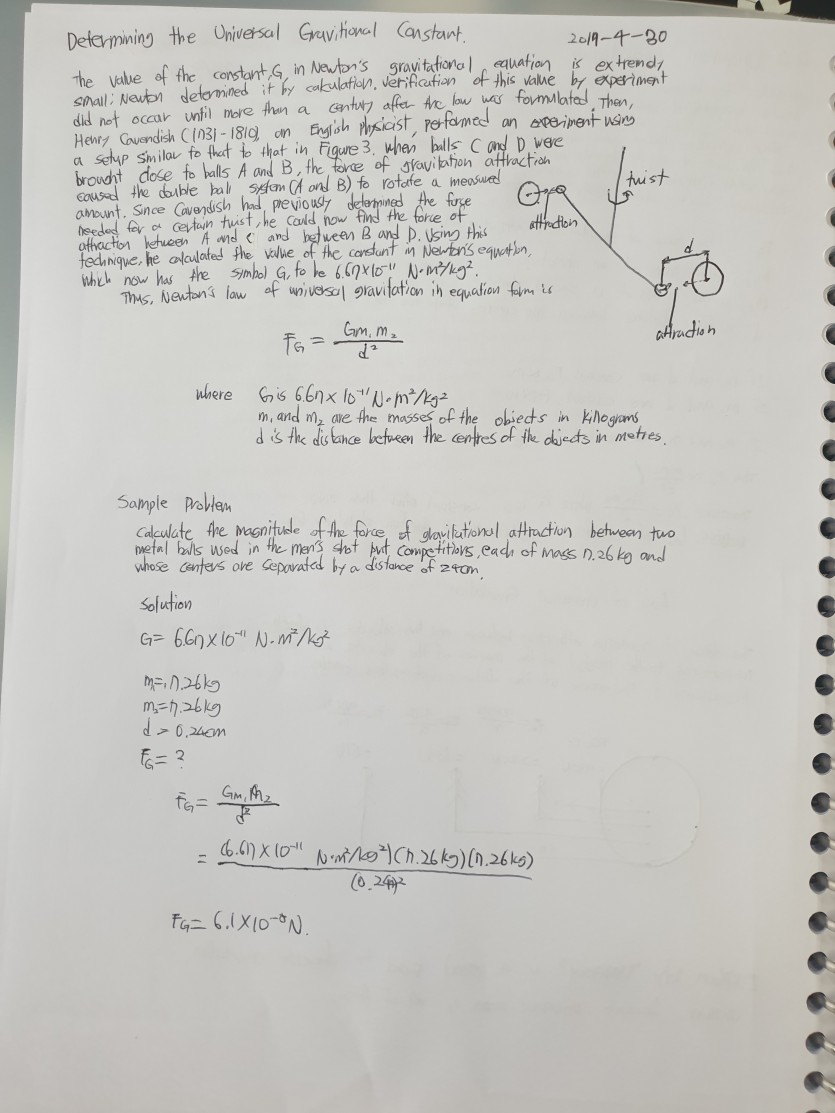 Determining the Universal Gravitional Constant.
2019-4-30
The value of the constant, G, in Newton's gravitational equation is extremely
small; Newton determined it by calculation. Verification of this value by experiment
did not occur until more than a century after the law was formulated. Then,
Henry Cavendish (1731-1810), an English physicist, performed an experiment using
a setup similar to that to that in Figure 3. when balls C and D were
brought close to balls A and B, the force of gravitation attraction
caused the double ball system (A and B) to rotate a measured
amount. Since Cavendish had previously determined the force
needed for a certain twist, he could now find the force of
attraction between A and C and between B and D. Using this
technique, he calculated the value of the constant in Newton's equation,
which now has the symbol G, to be 6.67×10⁻¹¹ N·m²/kg².
Thus, Newton's law of universal gravitation in equation form is
twist
attraction
d
attraction
F_G = Gm₁m₂/d²
where G is 6.67×10⁻¹¹ N·m²/kg²
m₁ and m₂ are the masses of the objects in kilograms
d is the distance between the centres of the objects in metres.
Sample Problem
Calculate the magnitude of the force of gravitational attraction between two
metal balls used in the men's shot put competitions, each of mass 7.26 kg and
whose centers are separated by a distance of 24cm.
Solution
G = 6.67×10⁻¹¹ N·m²/kg²
m₁ = 7.26kg
m₂ = 7.26kg
d = 0.24cm
F_G = ?
F_G = Gm₁m₂/d²
= (6.67×10⁻¹¹ N·m²/kg²)(7.26kg)(7.26kg)/(0.24)²
F_G = 6.1×10⁻⁸ N.